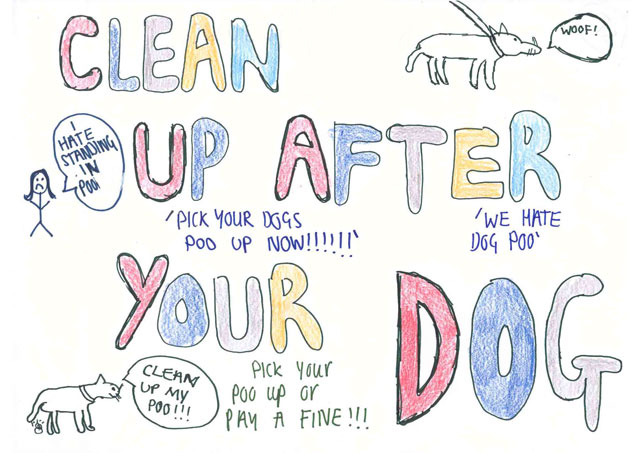 CLEAN
WOOF!
UP AFTER
I
HATE
STANDING
IN
POO!
'PICK YOUR DOGS
POO UP NOW!!!!!!'
'WE HATE
DOG POO'
YOUR
DOG
CLEAN
UP MY
POO!!!
PICK YOUR
POO UP OR
PAY A FINE!!!